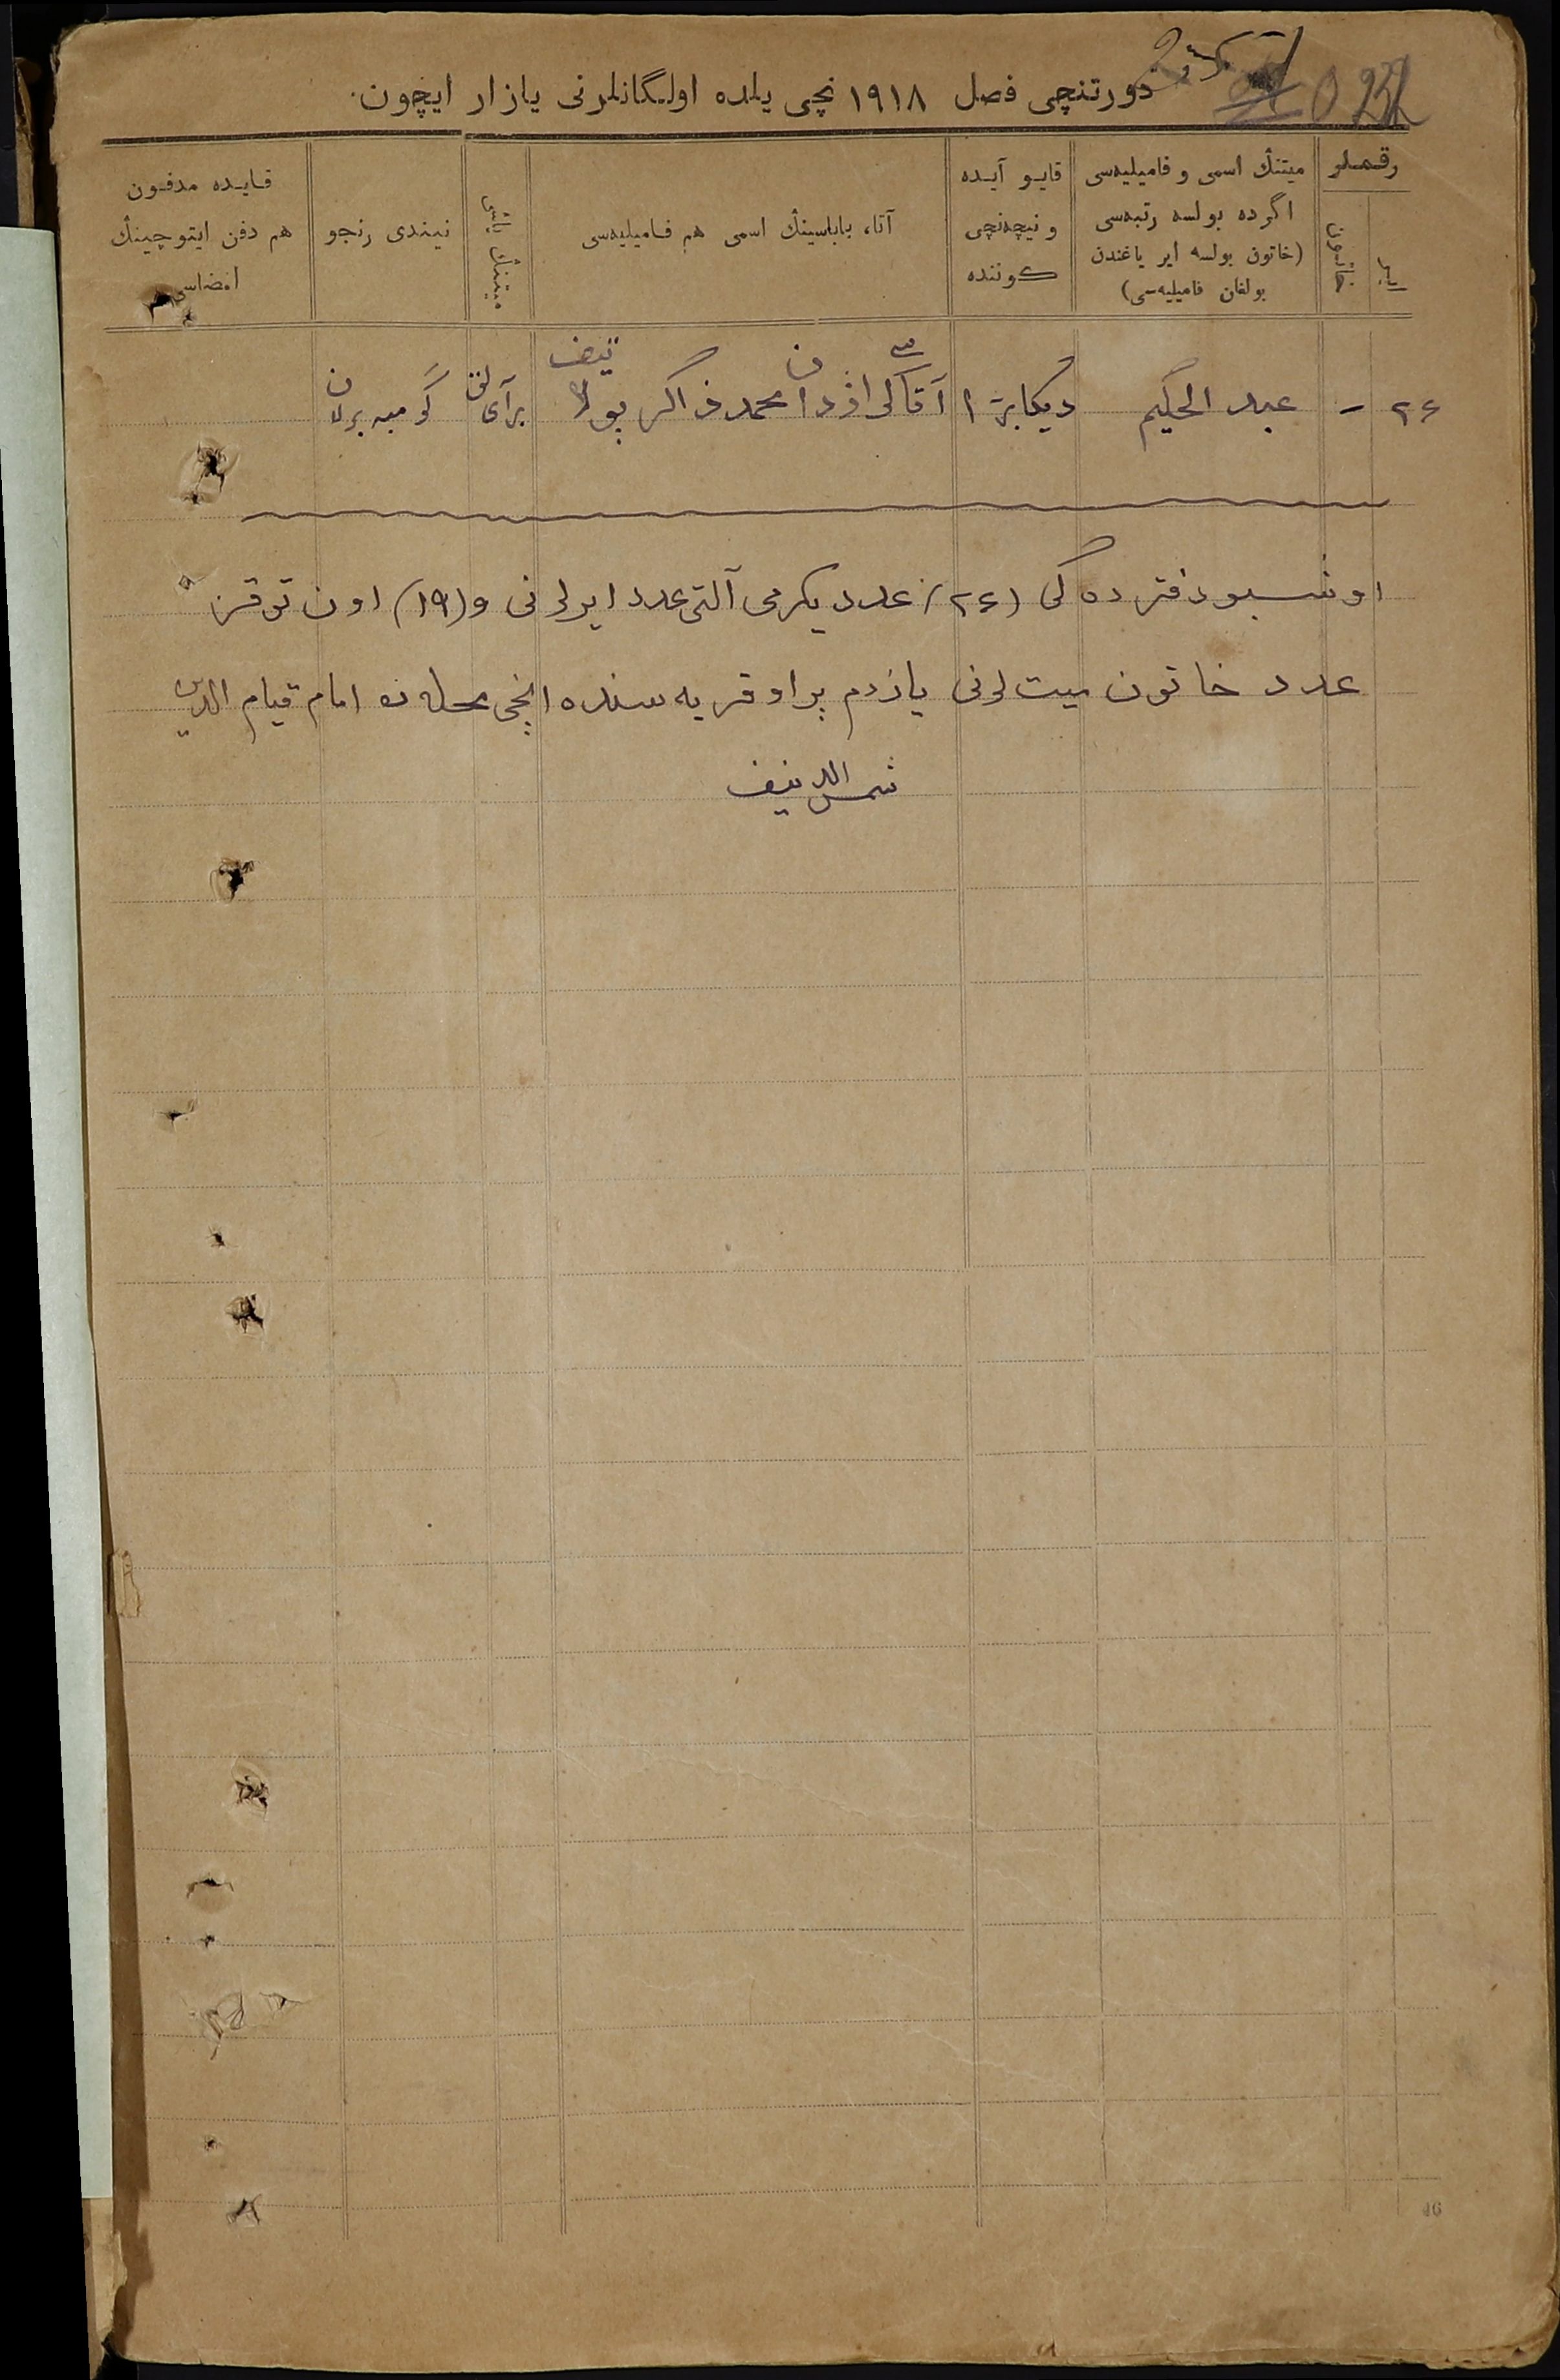 دورتنچی فصل ۱۹۱۸ نچی یلده اولگانلرنی یازار ایچون.
رقملر
ایر
خاتون
میتنڭ اسمی و فامیلیه‌سی
اگر ده بولسه رتبه‌سی
(خاتون بولسه ایر یاغندن
بولغان فامیلیه‌سی)
قایو آیده
و نیچه‌نچی
کوننده
آتا، باباسینڭ اسمی هم فامیلیه‌سی
میتنڭ یاشی
نیندی رنجو
قایده مدفون
هم دفن ایتوچینڭ
امضاسی
۲۶ – عبد الحکیم دیکابر ۱ محمد ذاکر بولاتیف بر آیلق برلان
اوشبو دفترده کی (۲۶) عدد یکرمی آلتی عدد ایرلرنی و (۱۹) اون توقز
عدد خاتون میت لرنی یازدم قریه سنده ۱نچی محله نڭ امام قیام الدین
شمس الدینیف